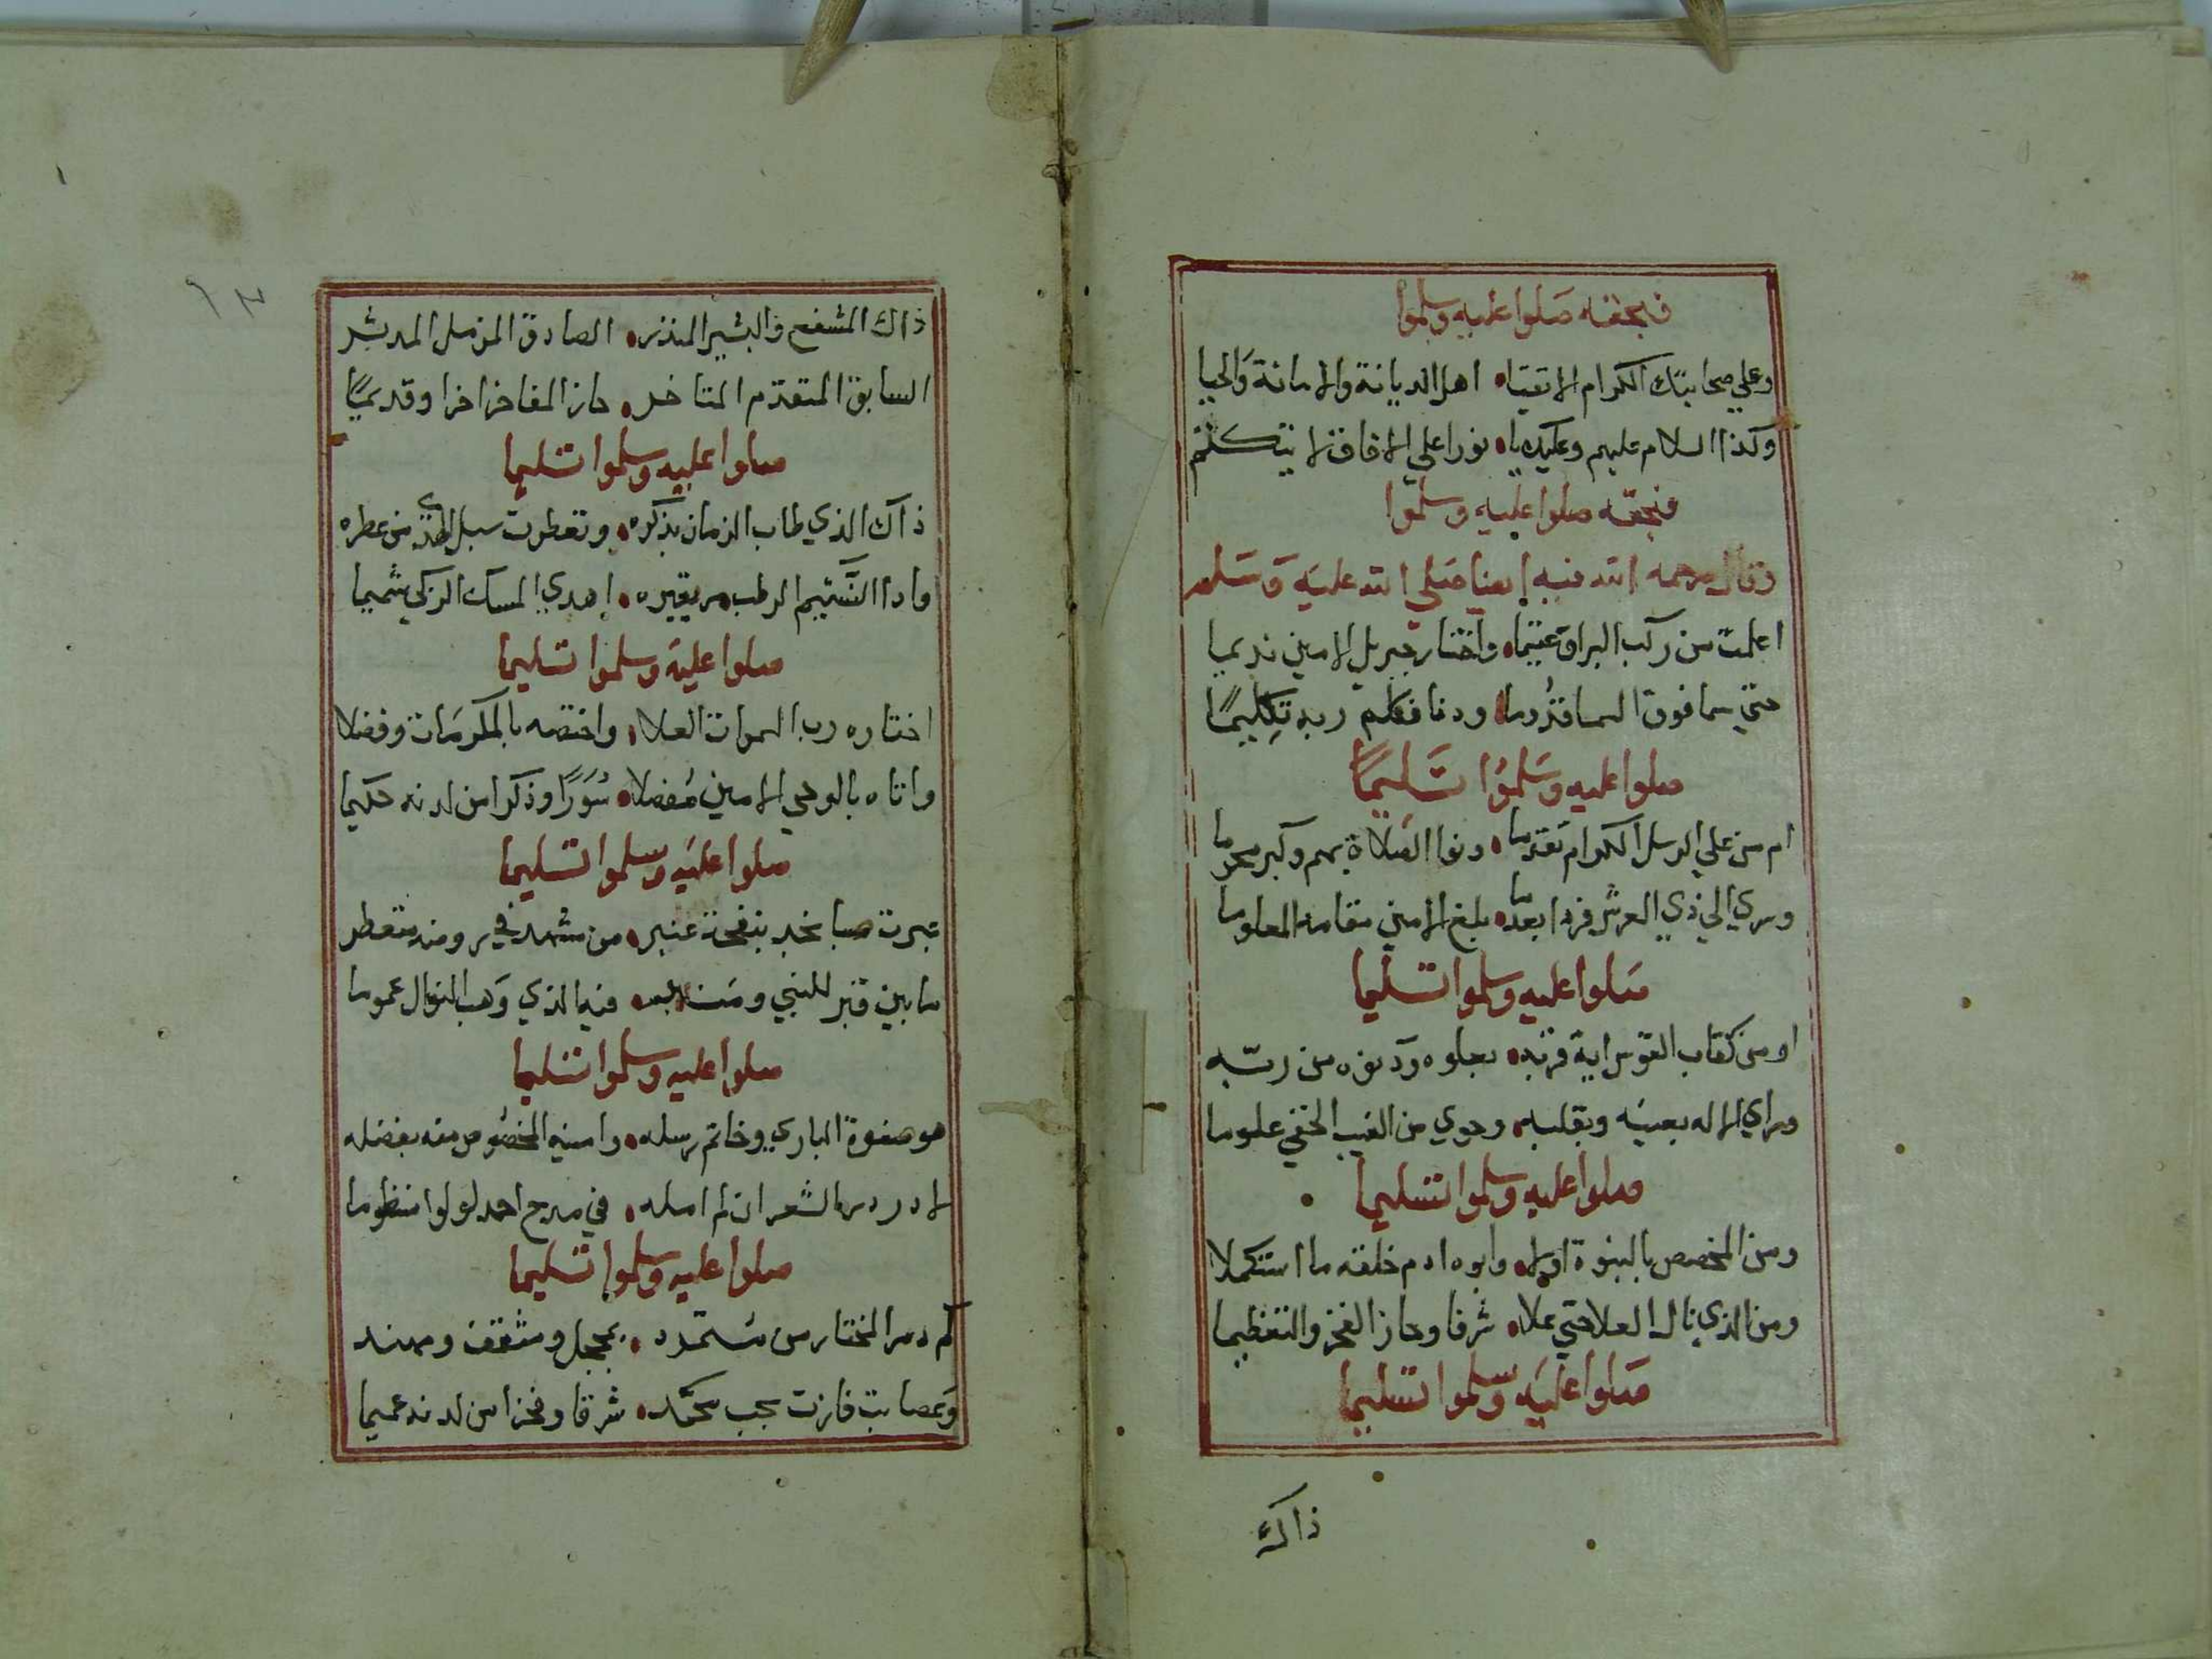 فبحقه صلوا عليه وسلموا
وعلي صحابتك الكرام الاتقيا اهل الديانة والامانة والحيا
وكذا السلام عليهم وعليك يا نورا علي الافاق لا يتكلثم
فبحقه صلوا عليه وسلموا
وقال رحمه الله فيه ايضا صلي الله عليه وسلم
اعلمت من ركب البراق عتيما واختار جبريل الامين نديما
حتي سما فوق السما قدوما ودنا فكلم ربه تكليمًا
صلوا عليه وسلمُوا تسَليمًا
ام من علي الرسل الكرام تقدما ونوا الصلاة بهم وكبر محرما
وسري الي ذي العرش فردا بعدما بلغ الامين مقامه المعلوما
صلوا عليه وسلموا تسليما
او من كقاب القوس اية قربه بعلوه ودنوه من ربّه
وراي الاله بعينه وبقلبه وحوي من الغيب الخفي علوما
صلوا عليه وسلموا تسليما
ومن المخصص بالنبوة اولا وابوه ادم خلقه ما استكملا
ومن الذي نال العلا حتي علا شرفا وحاز الفخر والتعظيما
صلوا عليه وسلموا تسليما
ذاك
ذاك المشفع والبشير المنذر الصادق المزمل المدثر
السابق المتقدم المتاخر حاز المفاخر اخرا وقديمًا
صلوا عليه وسلموا تسليما
ذاك الذي طاب الزمان بذكره وتعطرت سبل الهدي من عطره
واذا النَّسيم الرطب مر بقبره اهدي المسك الزكي شميما
صلوا عليه وسلموا تسليما
اختاره رب السموات العلا واختصه بالمكرمات وفضلا
واتاه بالوحي الامين مُفصلا سُوَرًا وذكرا من لدنه حكيما
صلوا عليه وسلموا تسليما
عبرت صبا نجد بنفحة عنبر من مشهد في روضه متعطر
ما بين قبر للنبي ومنبر فيه الذي وهب النوال عموما
صلوا عليه وسلموا تسليما
هو صفوة الباري وخاتم رسله وامينه المخصُوص منه بفضله
لا در در الشعر ان لم امله في مدح احمد لولوا منظوما
صلوا عليه وسلموا تسليما
كم دمر المختار من متمرد بمجحل ومثقف ومهند
وعصابة فازت بحب محمَّد شرفا وفخرا من لدنه عميما